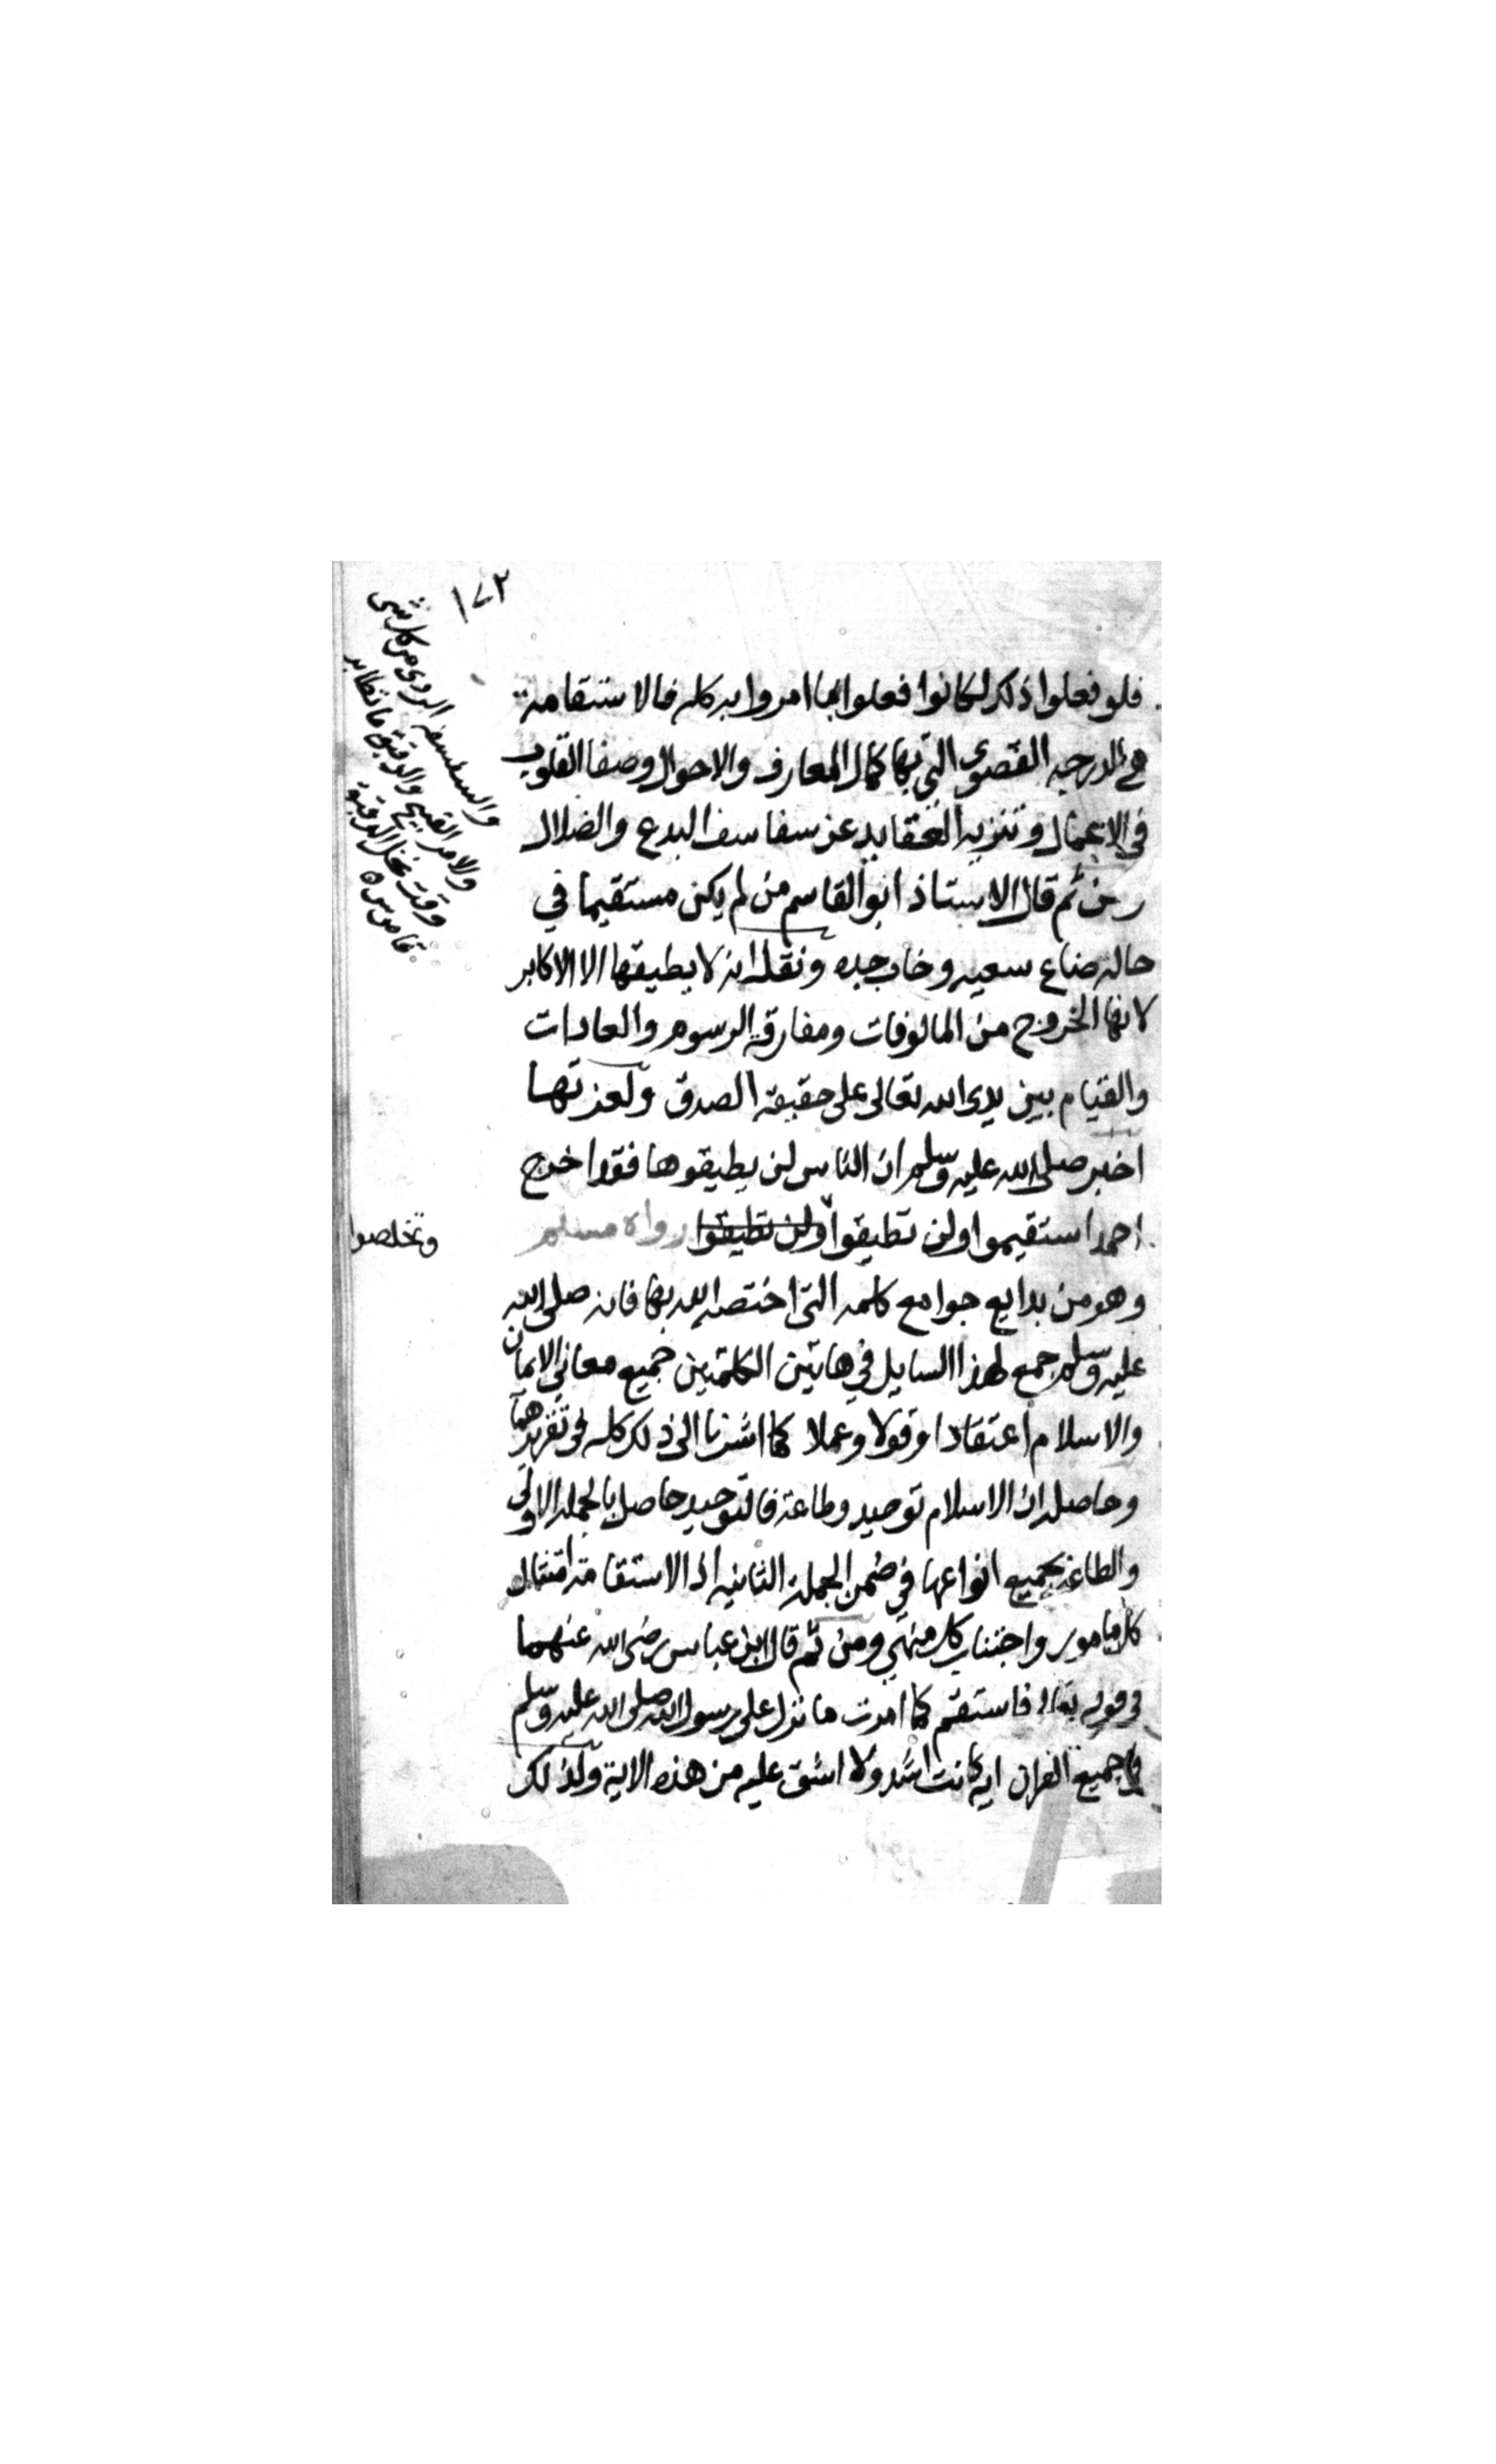 ١٧٢
فلو فعلوا ذلك لكانوا فعلوا بما امروا به كله فالاستقامة
هي الدرجة القصوى التي بها كمال المعارف والاحوال وصفا القلوب
في الاعمال وتنزيه العقايد عن سفاسف البدع والضلال
ومن ثم قال الاستاذ ابو القاسم من لم يكن مستقيما في
حاله ضاع سعيه وخاب جده ونقل انه لا يطيقها الا الاكابر
لانها الخروج من المالوفات ومفارقة الرسوم والعادات
والقيام بين يدى الله تعالى على حقيقة الصدق ولعزتها
اخبر صلى الله عليه وسلم ان الناس لن يطيقوها فقد اخرج
احمد استقيموا ولن تطيقوا ولن تطيقوا رواه مسلم
وهو من بدايع جوامع كلمه التى اختصه الله بها فانه صلى الله
عليه وسلم جمع لهذا السايل في هاتين الكلمتين جميع معاني الايمان
والاسلام اعتقادا وقولا وعملا كما اشرنا الى ذلك كله في تقريرهما
وحاصله ان الاسلام توحيد وطاعة فالتوحيد حاصل بالجملة الاولى
والطاعة بجميع انواعها في ضمن الجملة الثانيه اذ الاستقامة امتثال
كل مامور واجتناب كل منهي ومن ثم قال ابن عباس رضى الله عنهما
في قوله تعالى فاستقم كما امرت ما نزل على رسول الله صلى الله عليه وسلم
في جميع القران اية كانت اشد ولا اشق عليه من هذه الاية ولذلك
والسفسف الردى من كل شى
والامر القبيح والدقيق ما تطاير
وقت نخل الدقيق
قاموس
وتخلصوا